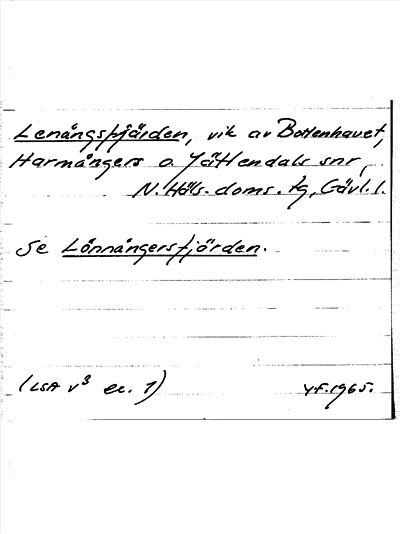 Lenångsfjärden, vik av Bottenhavet,
Harmångers o. Jättendals snr,
N. Häls. doms. tg, Gävl. l.
Se Lönnångersfjärden.
(LSA v³ ex. 1) YF.1965.